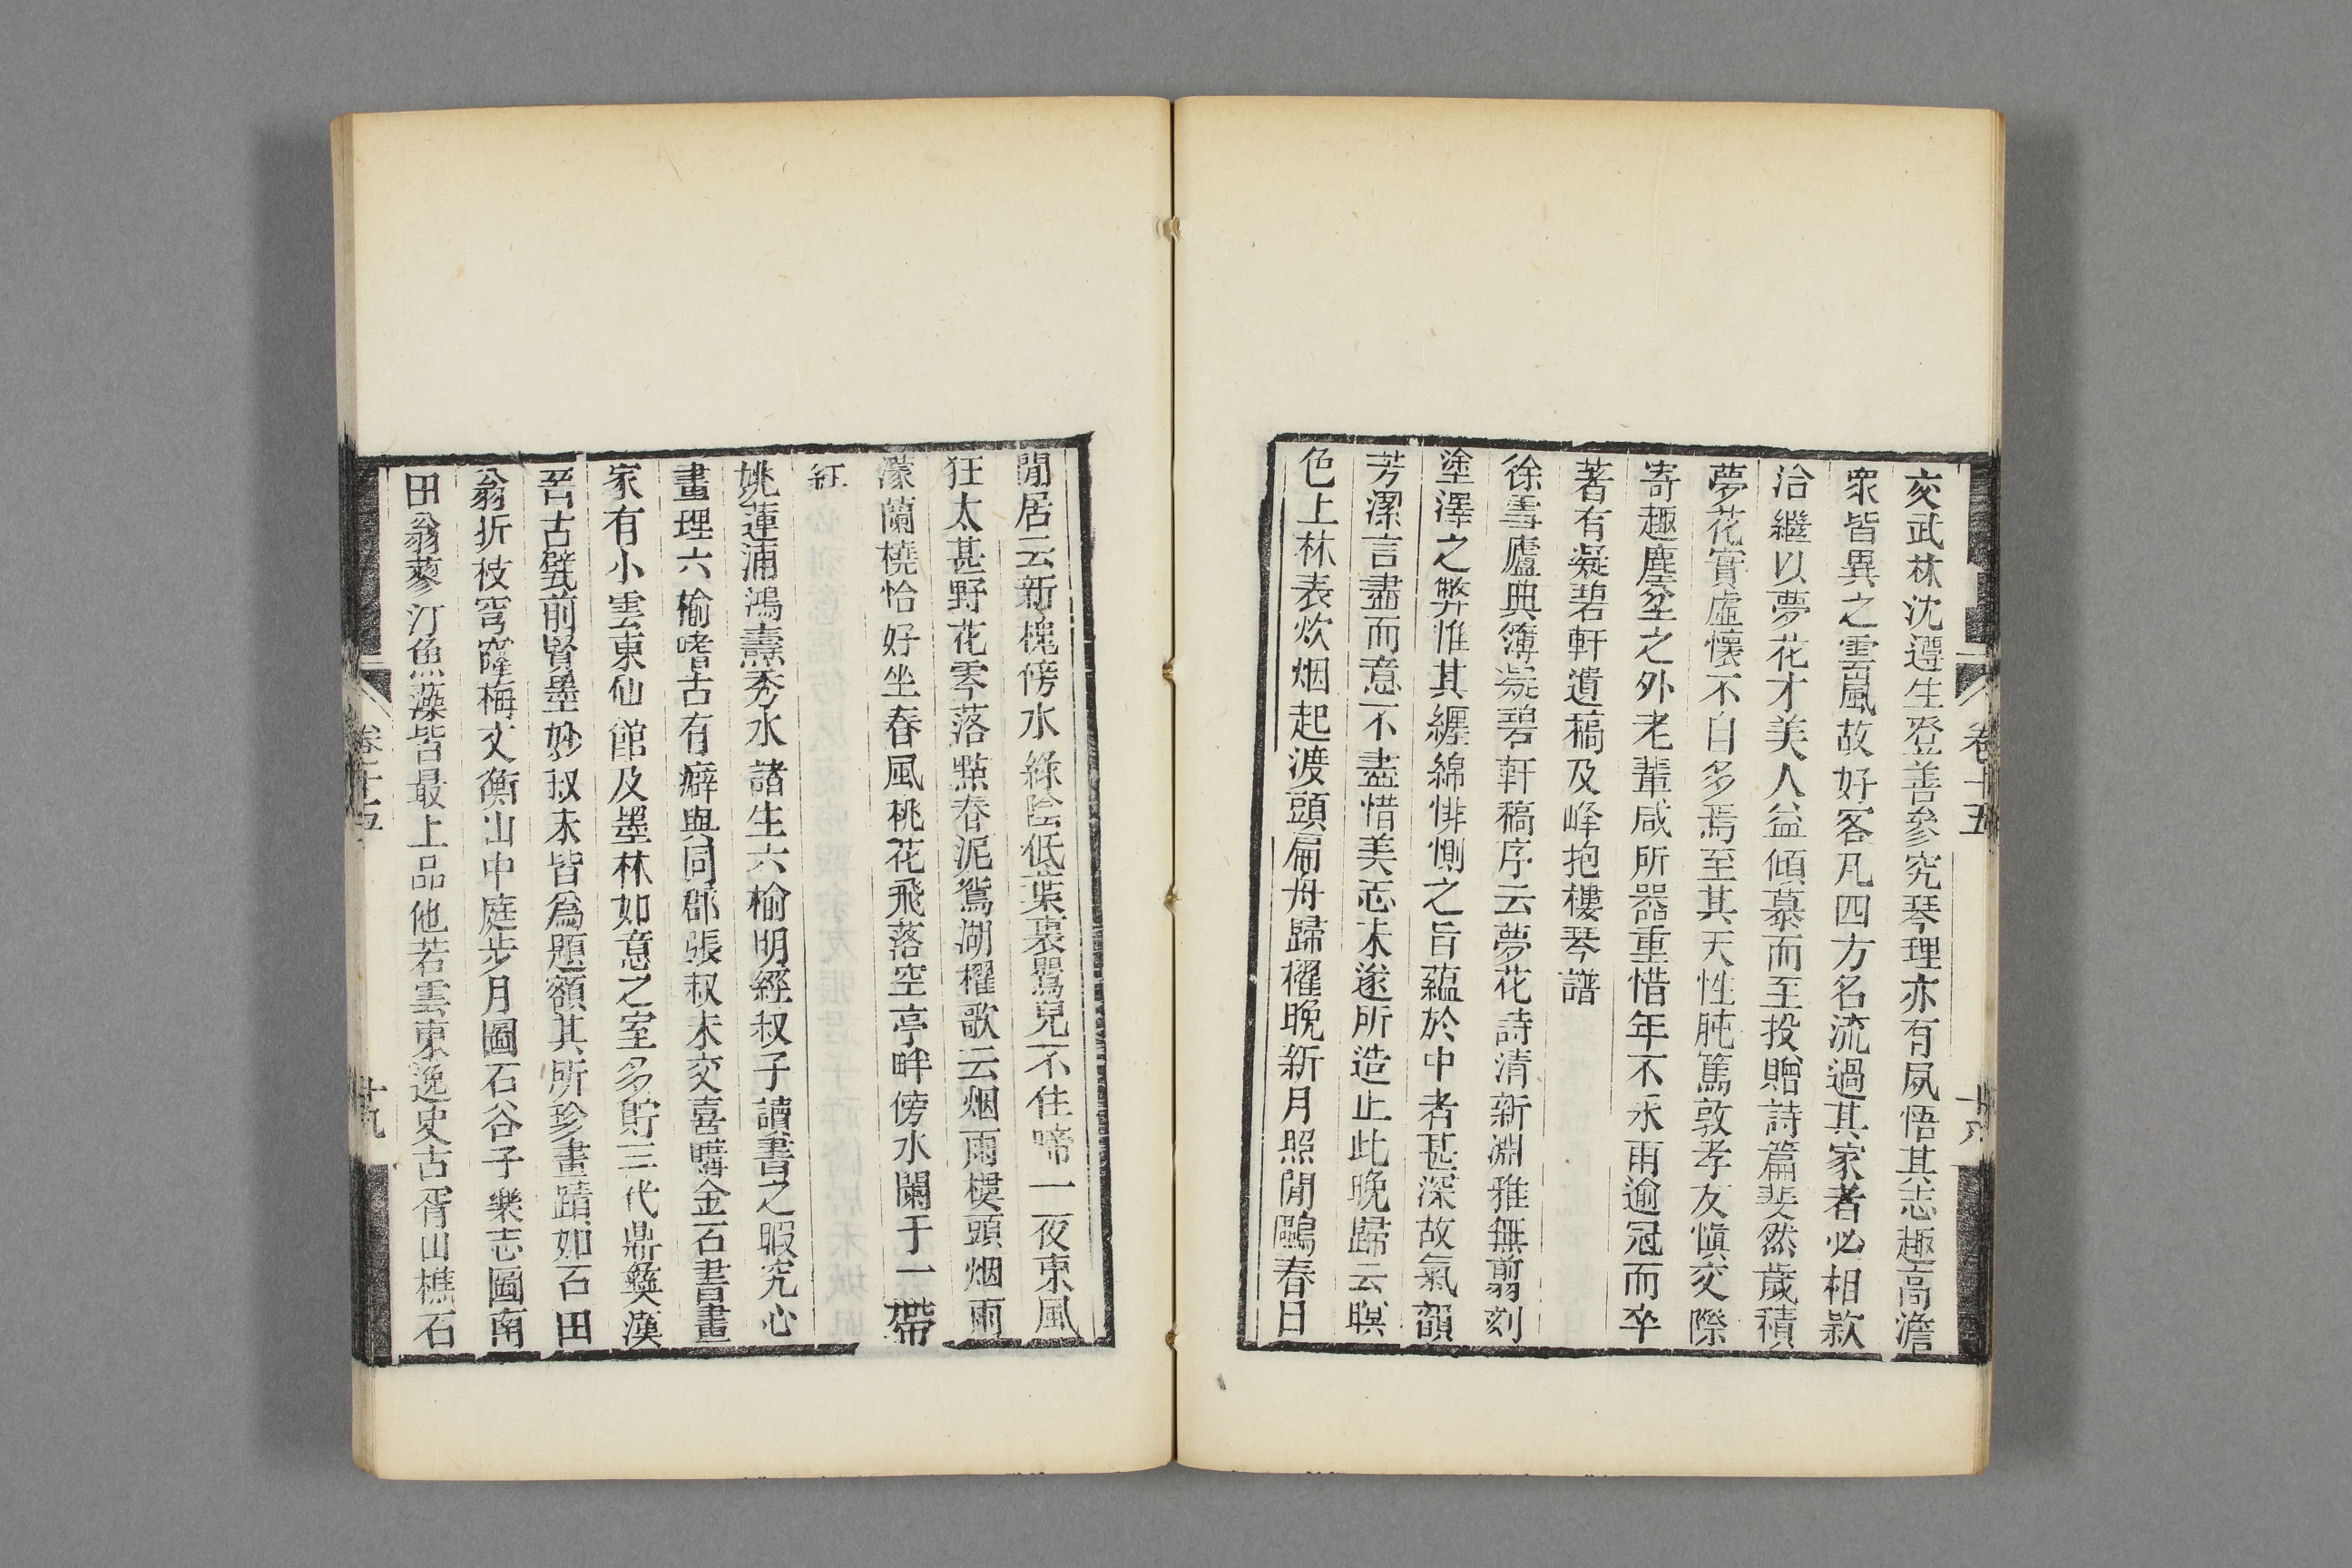 交武林沈遵生登善參究琴理亦有夙悟其志趣高澹
眾皆異之雲嵐故好客凡四方名流過其家者必相款
洽繼以夢花才美人益傾慕而至投贈詩篇斐然歲積
夢花實虛懷不自多焉至其天性肫篤敦孝友慎交際
寄趣塵坌之外老輩咸所器重惜年不永甫逾冠而卒
著有凝碧軒遺稿及峰抱樓琴譜
徐雪廬典簿凝碧軒稿序云夢花詩清新淵雅無翦刻
塗澤之弊惟其纏綿悱惻之旨蘊於中者甚深故氣韻
芳潔言盡而意不盡惜美志未遂所造止此晚歸云暝
色上林表炊烟起渡頭扁舟歸櫂晚新月照閒鷗春日
卷十五
閒居云新槐傍水綠陰低葉裏鸎兒不住啼一夜東風
狂太甚野花零落㸃春泥鴛湖櫂歌云烟雨樓頭烟雨
濛蘭橈恰好坐春風桃花飛落空亭畔傍水闌于一帶
紅
姚蓮浦鴻燾秀水諸生六榆明經叔子讀書之暇究心
畫理六榆嗜古有癖與同郡張叔未交喜購金石書畫
家有小雲東仙館及墨林如意之室多貯三代鼎彝漢
晉古甓前賢墨妙叔未皆爲題額其所珍畫蹟如石田
翁折枝穹窿梅文衡山中庭步月圖石谷子樂志圖南
田翁蓼汀魚藻皆最上品他若雲東逸史古胥山樵石
卷十五
十九